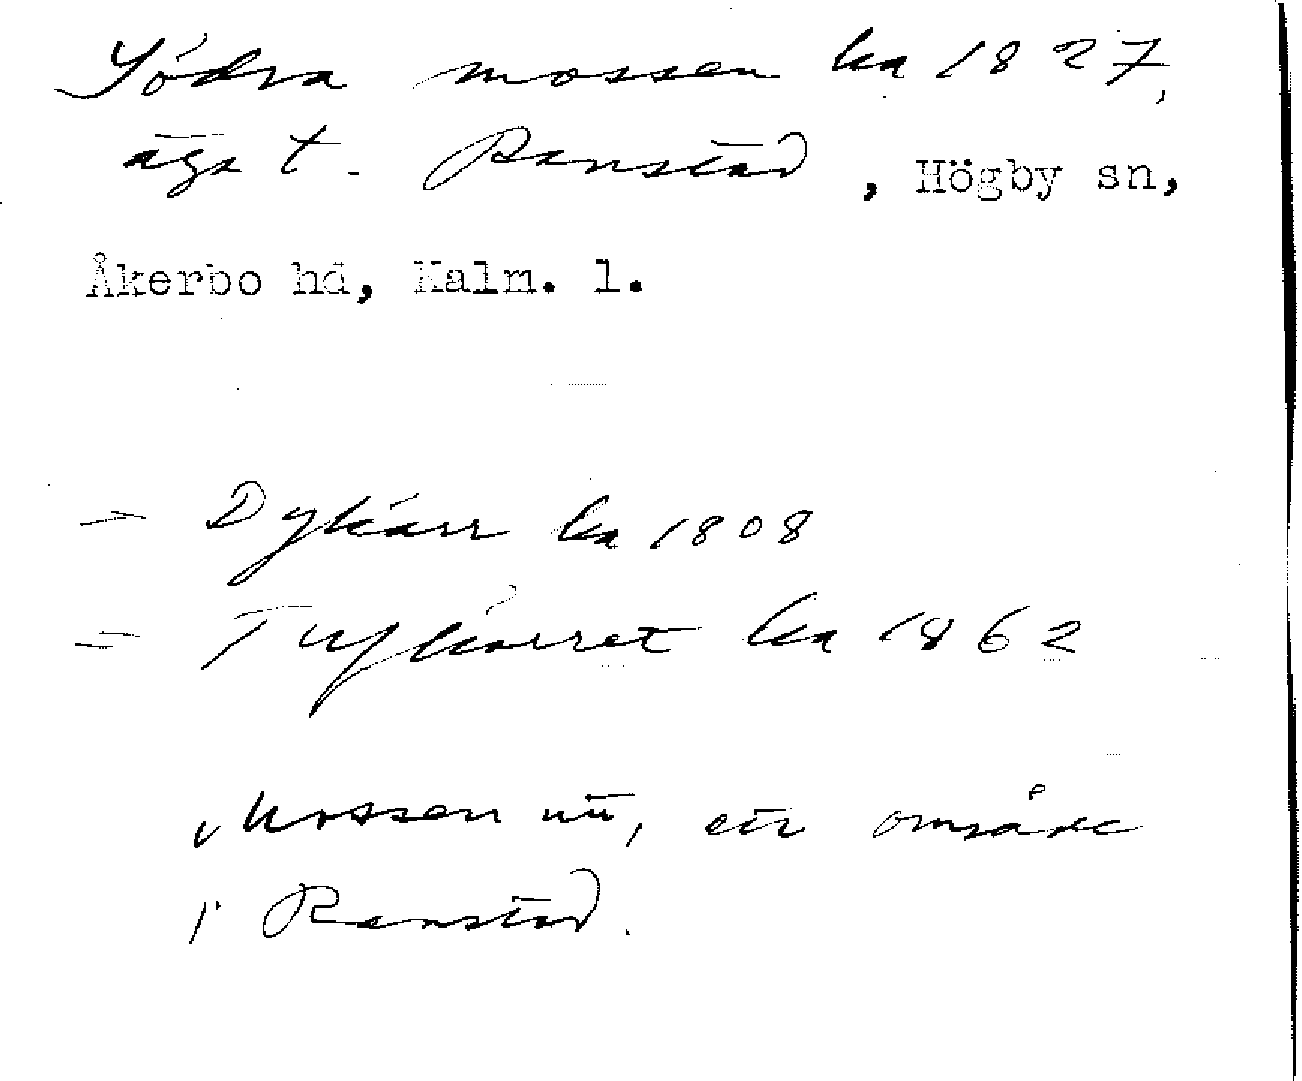 Södra mossen ka 1827,
äga t. Ranstad, Högby sn,
Åkerbo hd, Kalm. l.
— Dykärr ka 1808
= Tuykärret ka 1862
Mossen nu, ett område
i Ranstad.